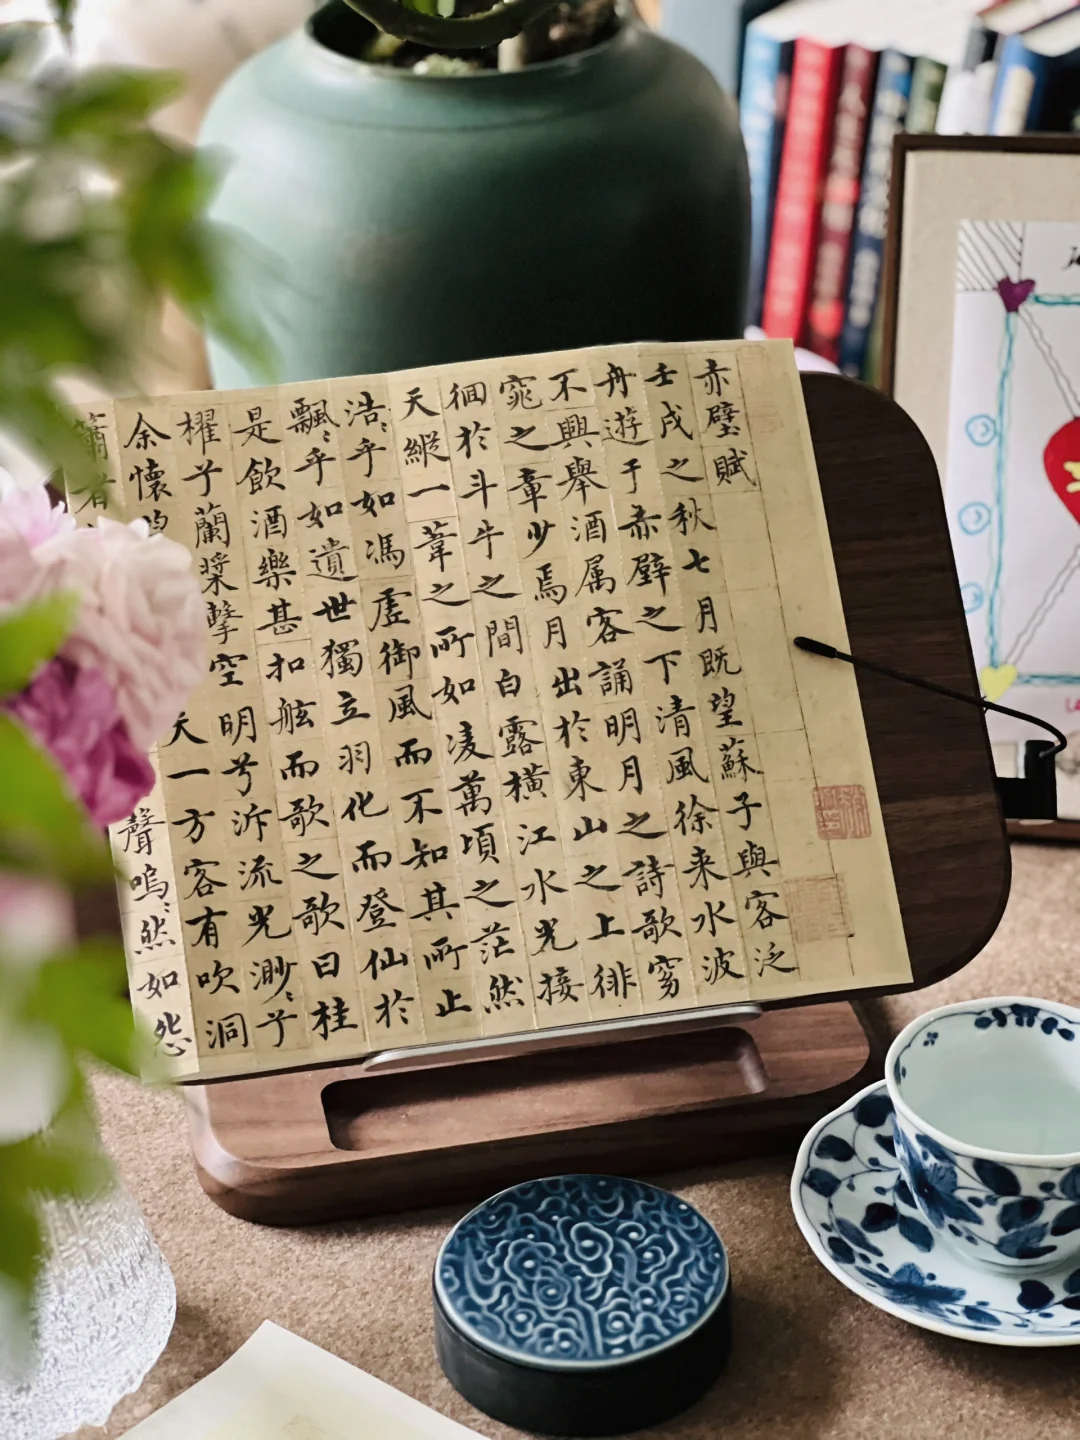 赤壁賦
壬戌之秋七月既望蘇子與客泛
舟遊于赤壁之下清風徐来水波
不興舉酒属客誦明月之詩歌窈
窕之章少焉月出於東山之上徘
徊於斗牛之間白露橫江水光接
天縱一葦之所如凌萬頃之茫然
浩〻乎如馮虛御風而不知其所止
飄〻乎如遺世獨立羽化而登仙於
是飲酒樂甚扣舷而歌之歌曰桂
櫂兮蘭槳擊空明兮泝流光渺〻兮
余懷 天一方客有吹洞
簫者 聲嗚〻然如怨